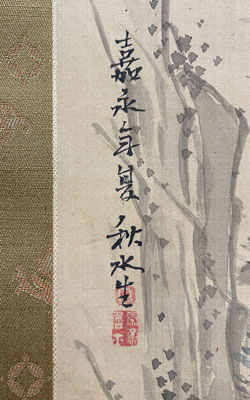 嘉永年夏 秋水生